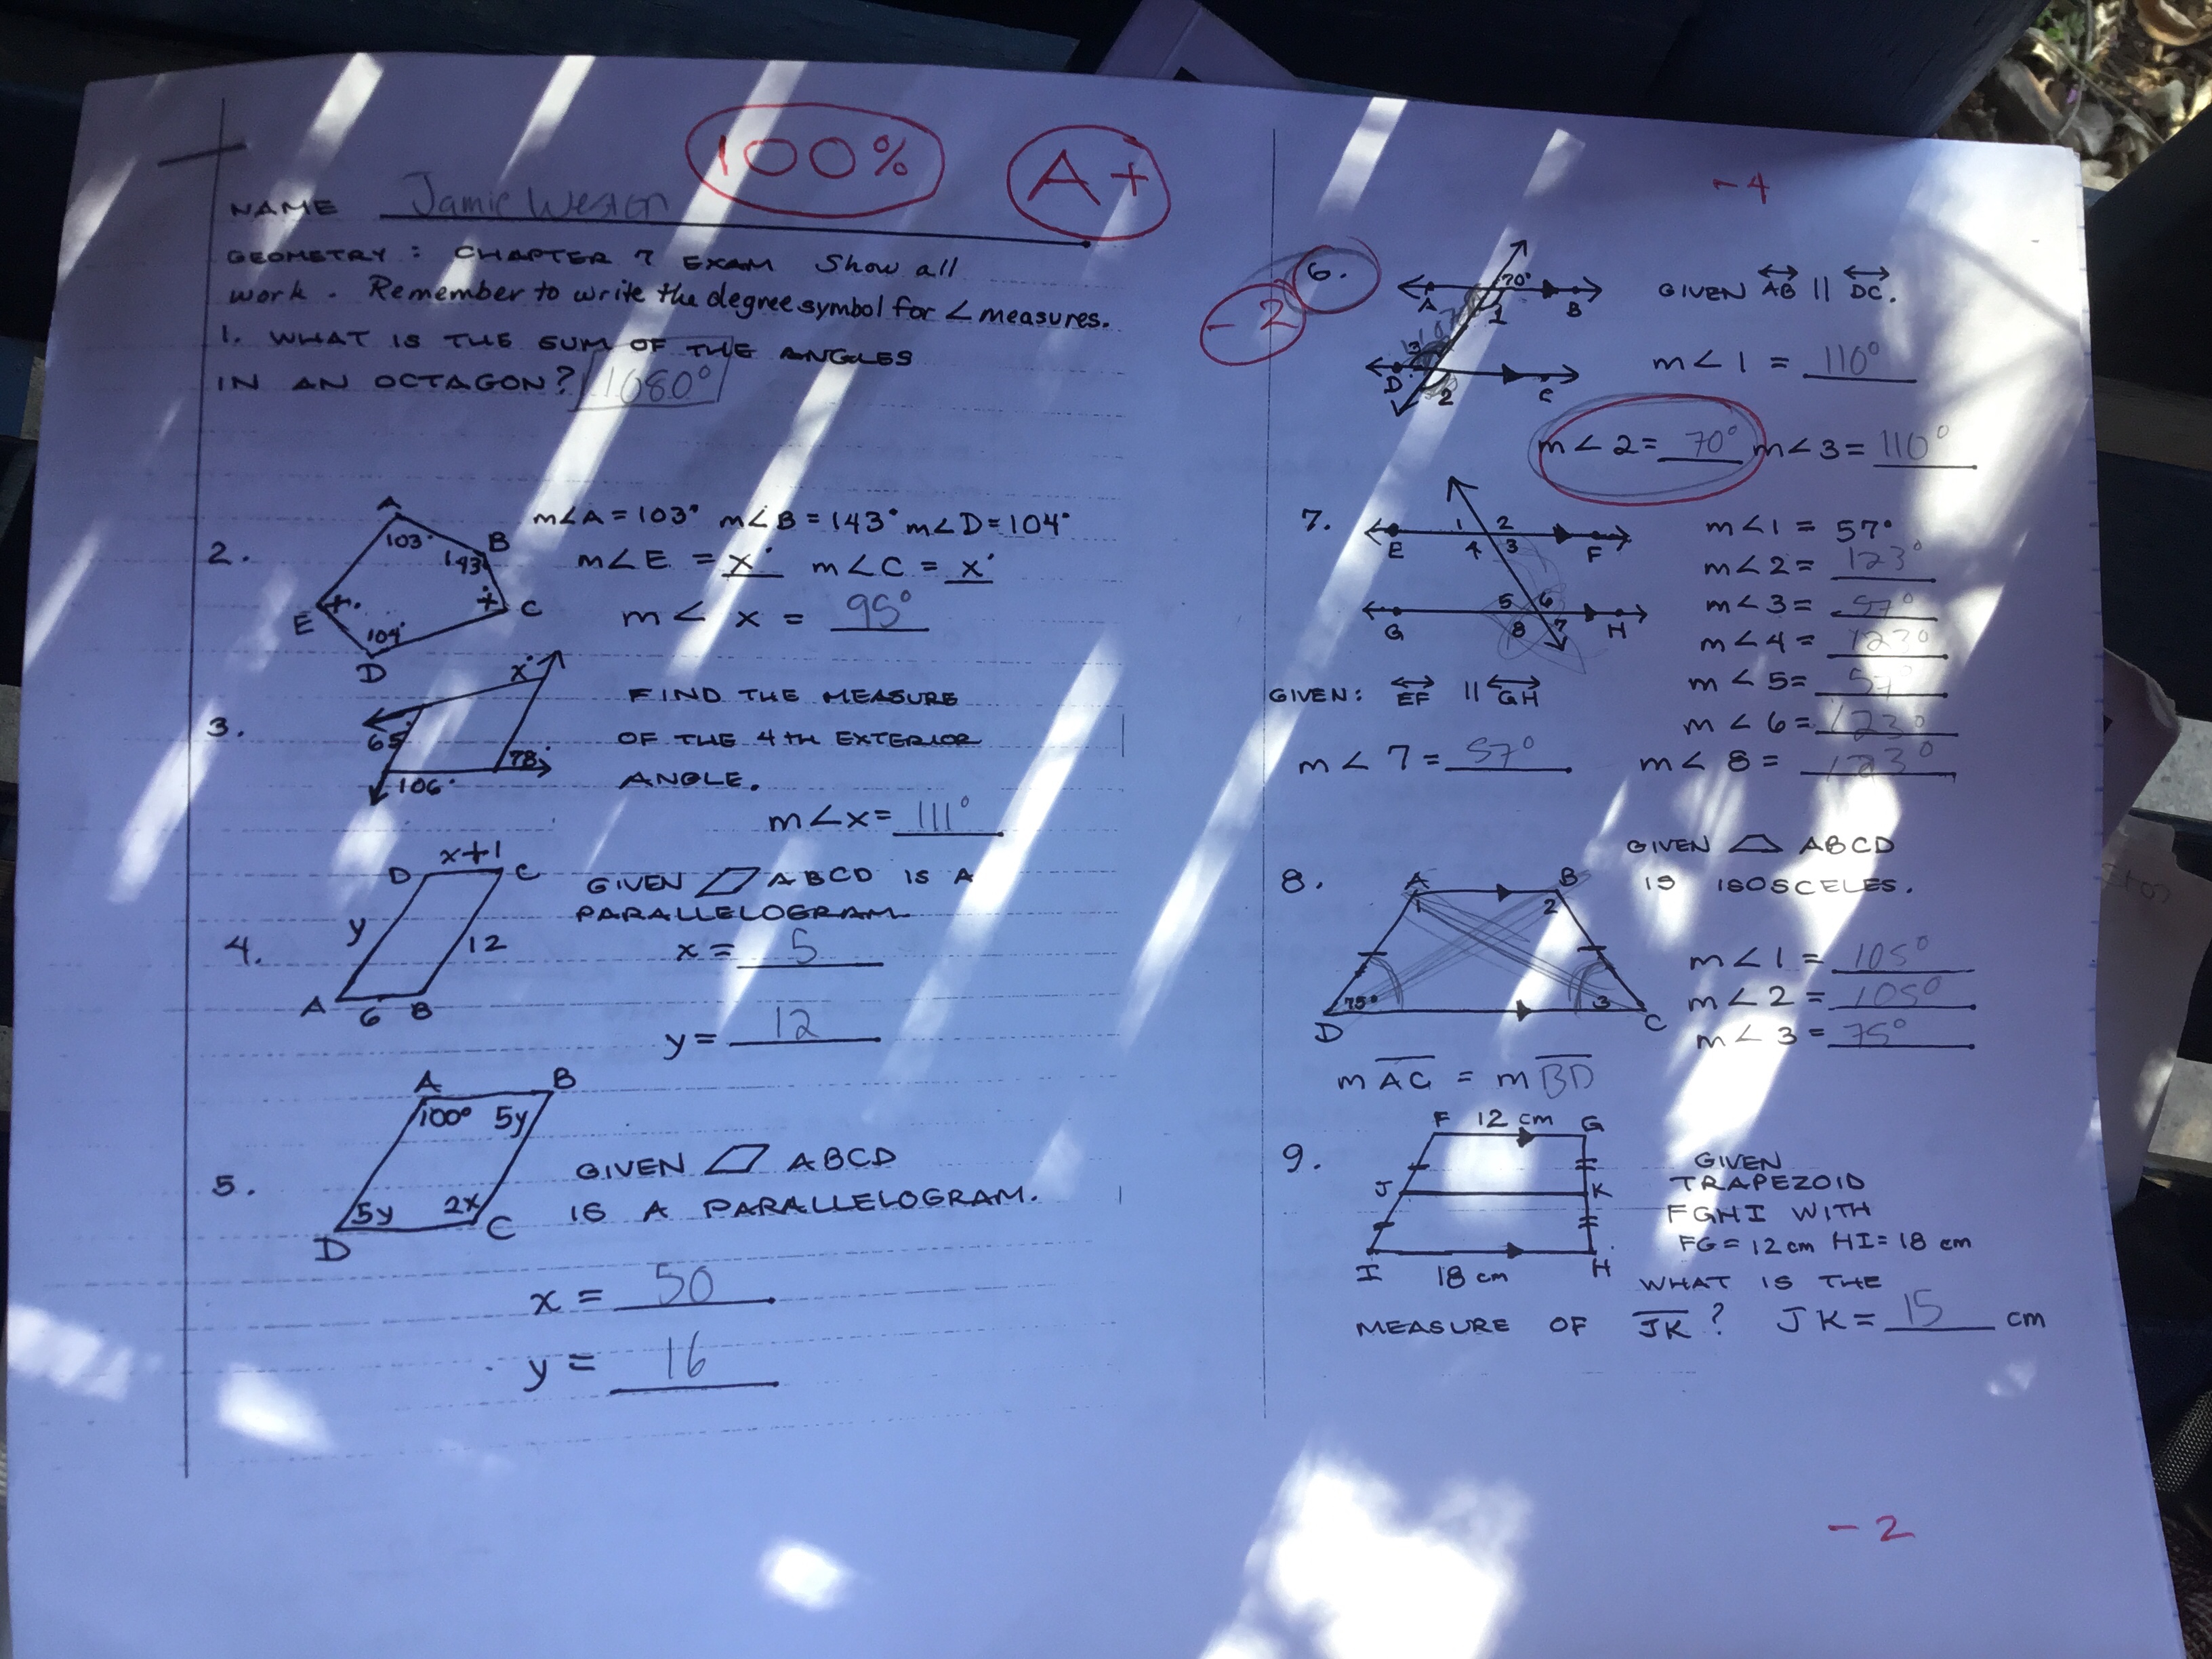 100% A+
NAME Jamie Weston
GEOMETRY: CHAPTER 7 EXAM Show all
work. Remember to write the degree symbol for ∠ measures.
1. WHAT IS THE SUM OF THE ANGLES
IN AN OCTAGON? 1080°
2.
A
103°
B
143°
E
x
x
C
104°
D
m∠A = 103° m∠B = 143° m∠D = 104°
m∠E = x° m∠C = x°
m∠ x = 95°
3.
x°
65°
78°
106°
FIND THE MEASURE
OF THE 4TH EXTERIOR
ANGLE.
m∠x = 111°
4.
x+1
D C
y
12
A 6 B
GIVEN ▱ ABCD IS A
PARALLELOGRAM
x = 5
y = 12
5.
A B
100° 5y
5y 2x
D C
GIVEN ▱ ABCD
IS A PARALLELOGRAM.
x = 50
y = 16
-4
-2
6.
70°
A 1 B
3
D 2 C
GIVEN AB || DC.
m∠1 = 110°
m∠2 = 70° m∠3 = 110°
7.
1 2
E 4 3 F
5 6
G 8 7 H
m∠1 = 57°
m∠2 = 123°
m∠3 = 57°
m∠4 = 123°
m∠5 = 57°
m∠6 = 123°
GIVEN: EF || GH
m∠7 = 57° m∠8 = 123°
8.
A B
1 2
75° 3
D C
GIVEN ⏢ ABCD
IS ISOSCELES.
m∠1 = 105°
m∠2 = 105°
m∠3 = 75°
m AC = m BD
9.
F 12 cm G
J K
I 18 cm H
GIVEN
TRAPEZOID
FGHI WITH
FG = 12 cm HI = 18 cm
WHAT IS THE
MEASURE OF JK? JK = 15 cm
-2